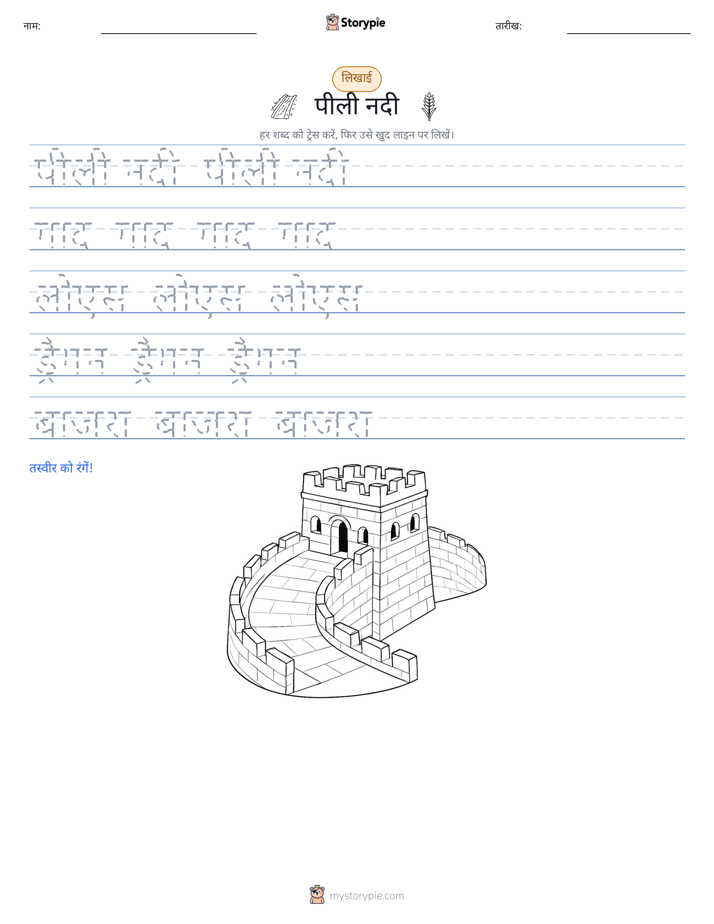 नाम:
Storypie
तारीख:
लिखाई
पीली नदी
हर शब्द को ट्रेस करें, फिर उसे खुद लाइन पर लिखें।
पीली नदी पीली नदी
गाद गाद गाद गाद
लोएस लोएस लोएस
ड्रैगन ड्रैगन ड्रैगन
बाजरा बाजरा बाजरा
तस्वीर को रंगें!
mystorypie.com